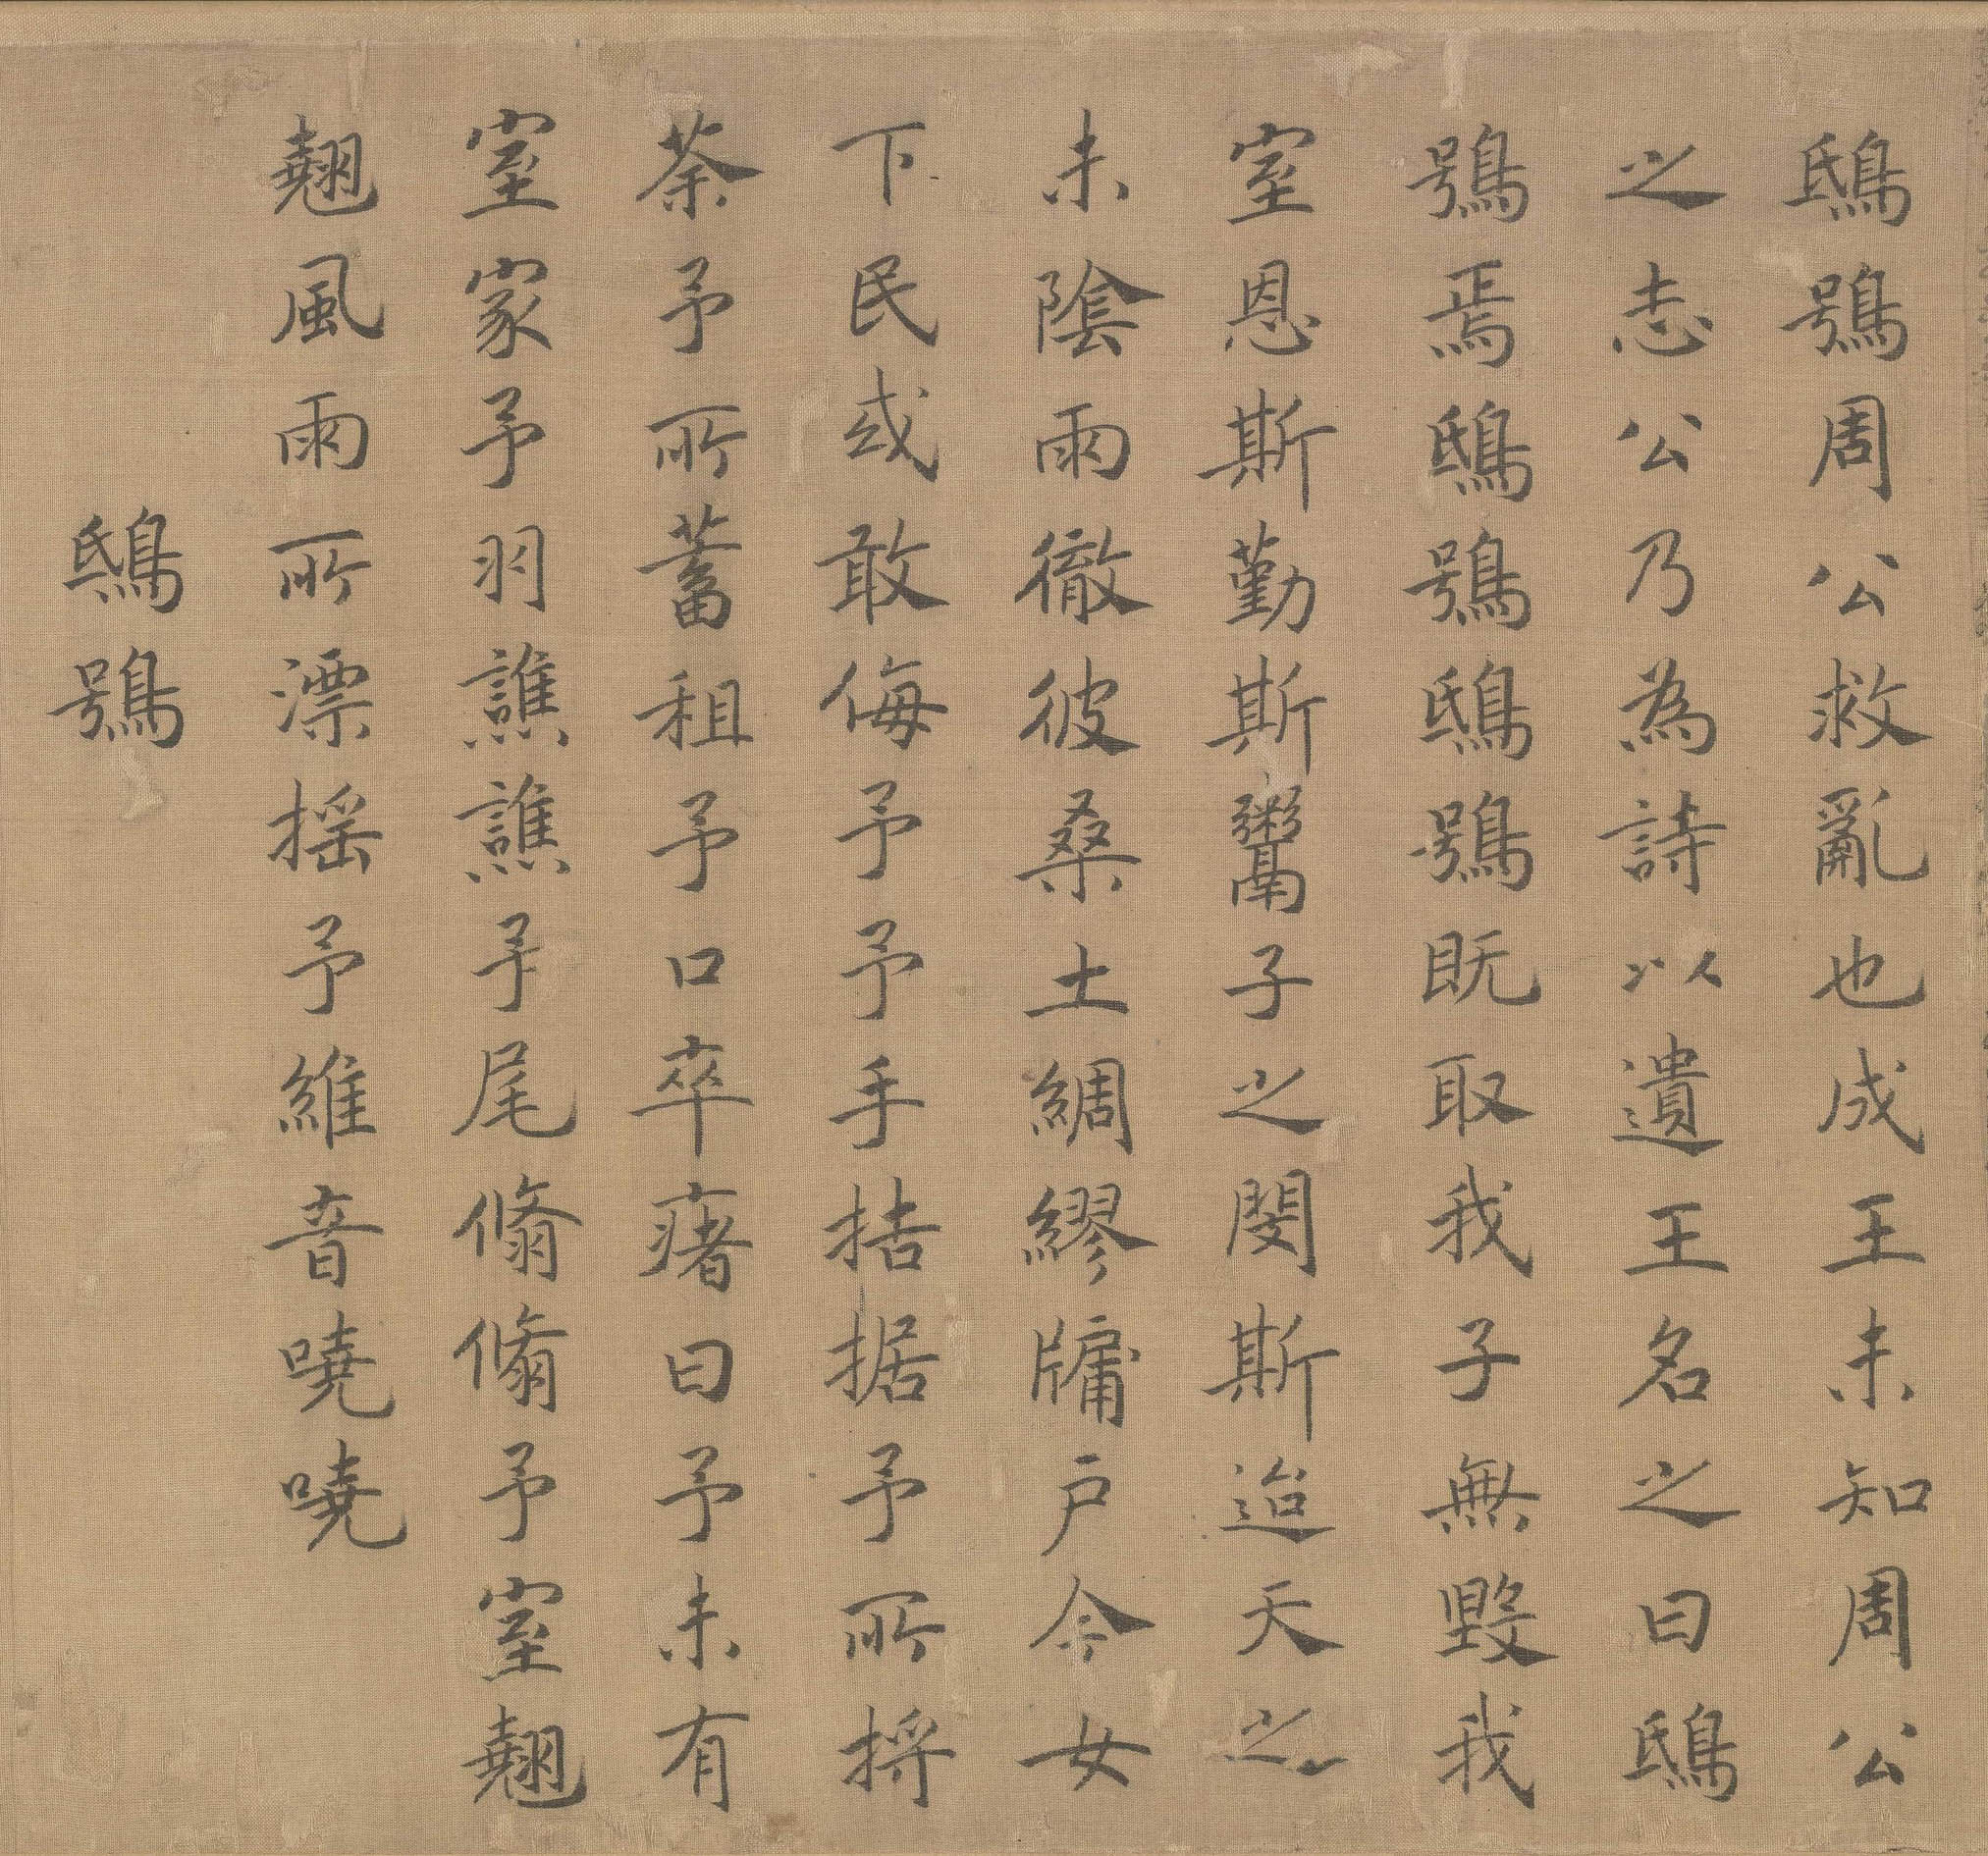 鴟鴞周公救亂也成王未知周公
之志公乃為詩以遺王名之曰鴟
鴞焉鴟鴞鴟鴞既取我子無毀我
室恩斯勤斯鬻子之閔斯迨天之
未陰雨徹彼桑土綢繆牖戶今女
下民或敢侮予予手拮据予所捋
荼予所蓄租予口卒瘏曰予未有
室家予羽譙譙予尾翛翛予室翹
翹風雨所漂搖予維音嘵嘵
鴟鴞